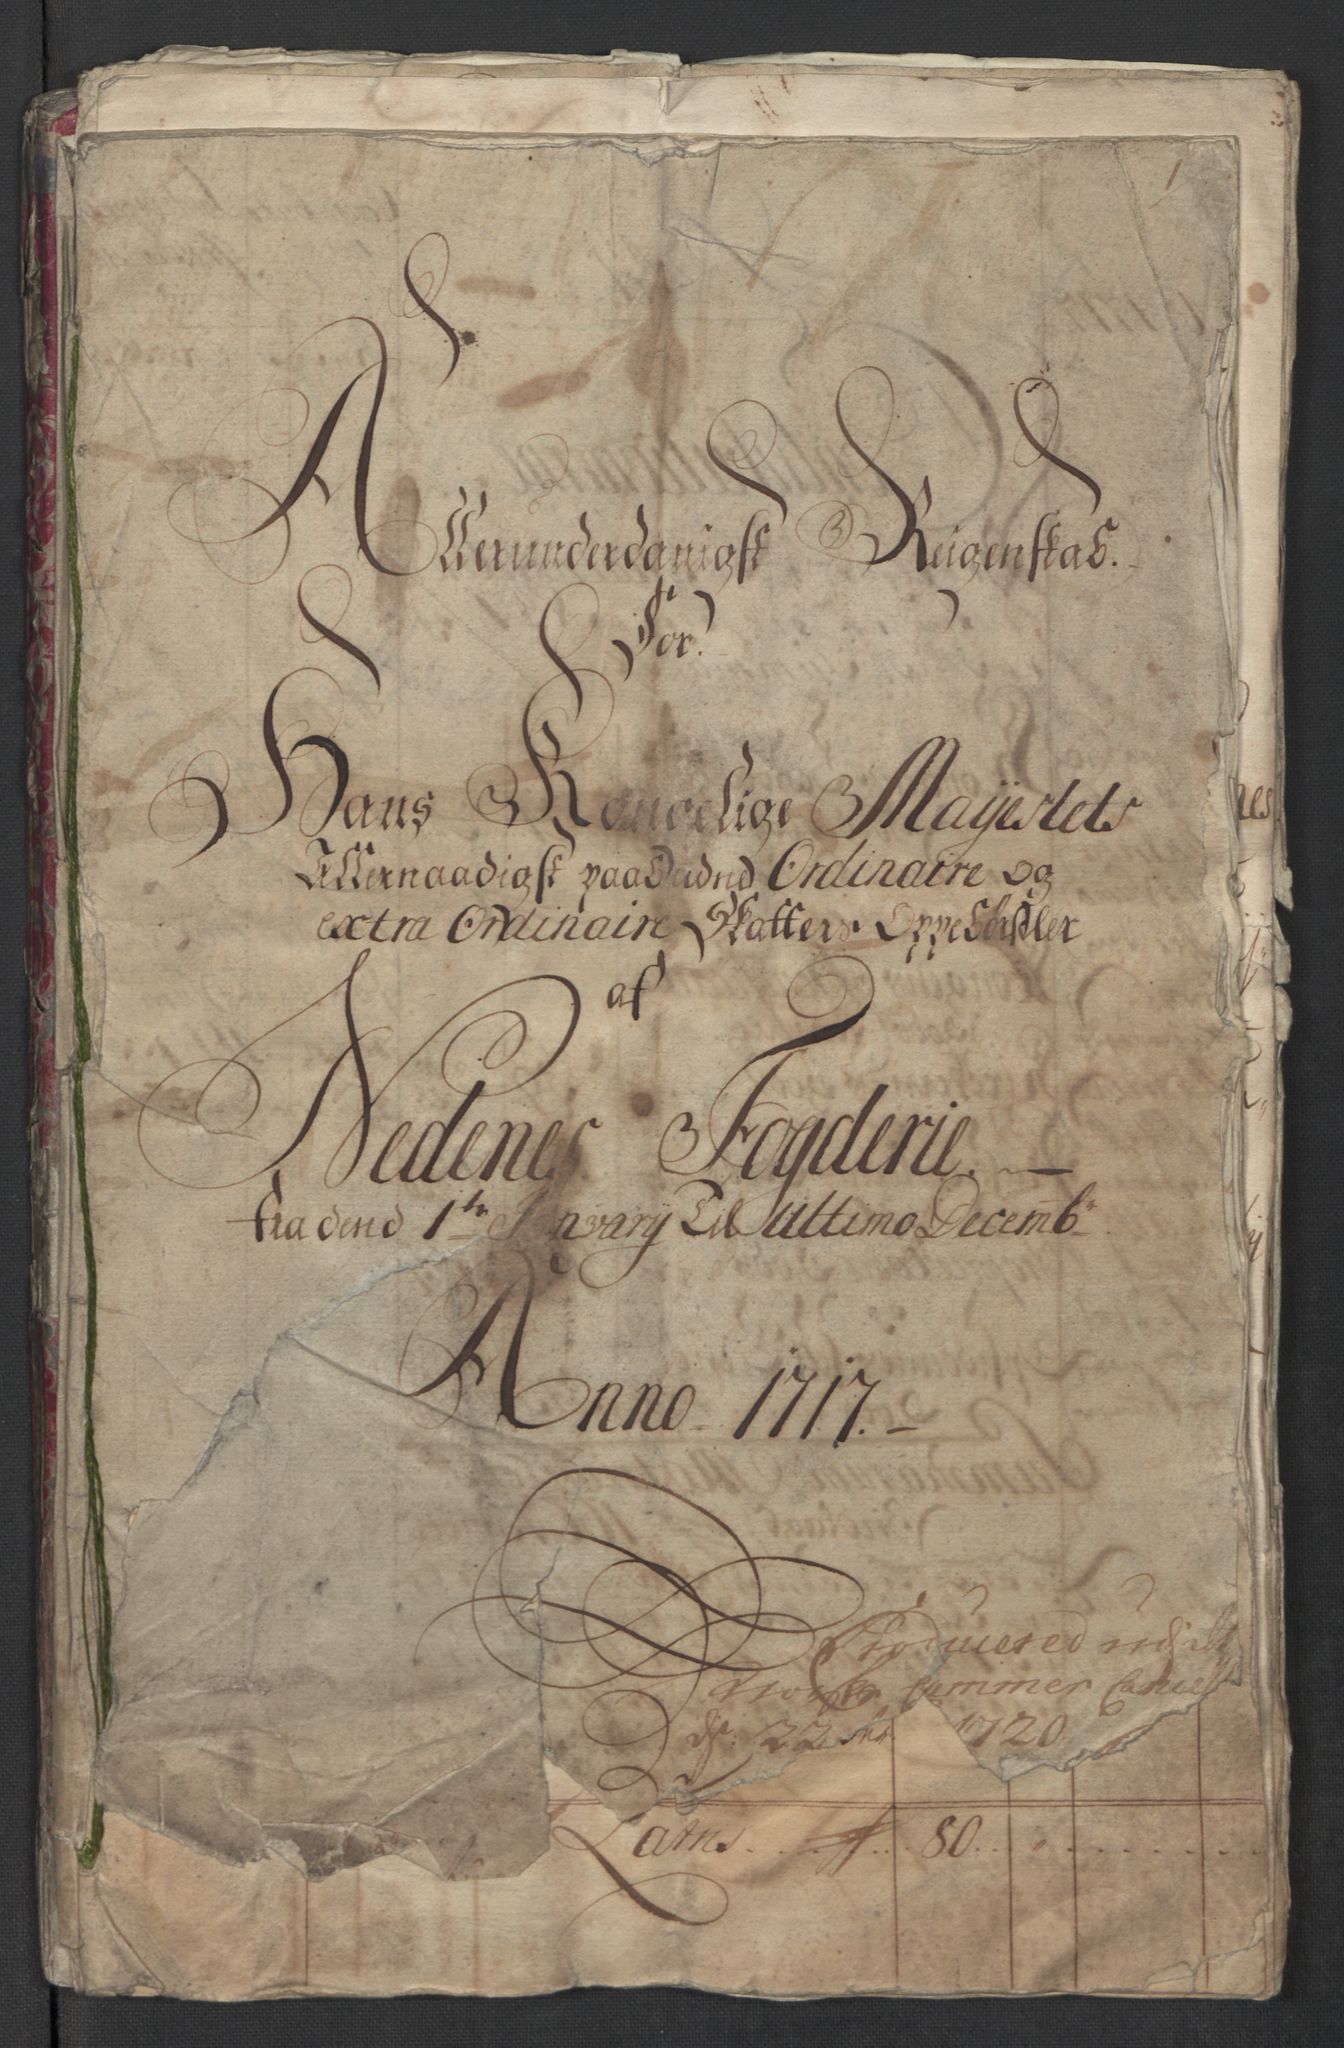 1
Allerunderdanigst Reigenskab.
For.
Hans Kongelige Mayestets
Allernaadigst paabudne Ordinaire og
extra Ordinaire Skatters Oppebörsler
af
Nedenes Fogderie.
fra dend 1te January Til Ultimo Decembr
Anno 1717.
Produceret udi det
Norske Cammer Cancel
d: 22 1720
Latus 80